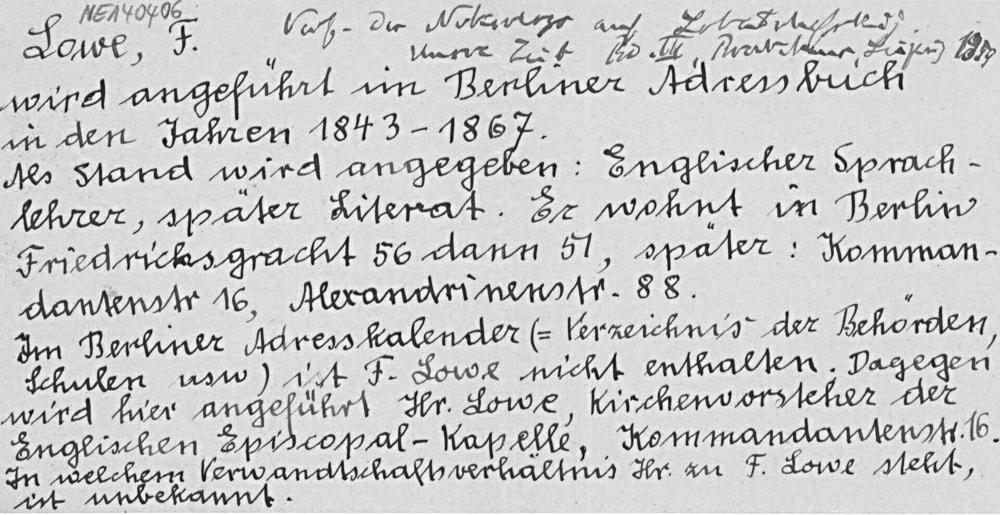 NEA40406
Lowe, F. Verf. der Nekrologe auf
Unsre Zeit Bd. III, Brockhaus, Leipzig 1859
wird angeführt im Berliner Adressbuch
in den Jahren 1843-1867.
Als Stand wird angegeben: Englischer Sprach-
lehrer, später Literat. Er wohnt in Berlin
Friedrichsgracht 56 dann 51, später: Komman-
dantenstr 16, Alexandrinenstr. 88.
Im Berliner Adresskalender (= Verzeichnis der Behörden,
Schulen usw) ist F. Lowe nicht enthalten. Dagegen
wird hier angeführt Hr. Lowe, Kirchenvorsteher der
Englischen Episcopal-Kapelle, Kommandantenstr. 16.
In welchem Verwandtschaftsverhältnis Hr. zu F. Lowe steht,
ist unbekannt.